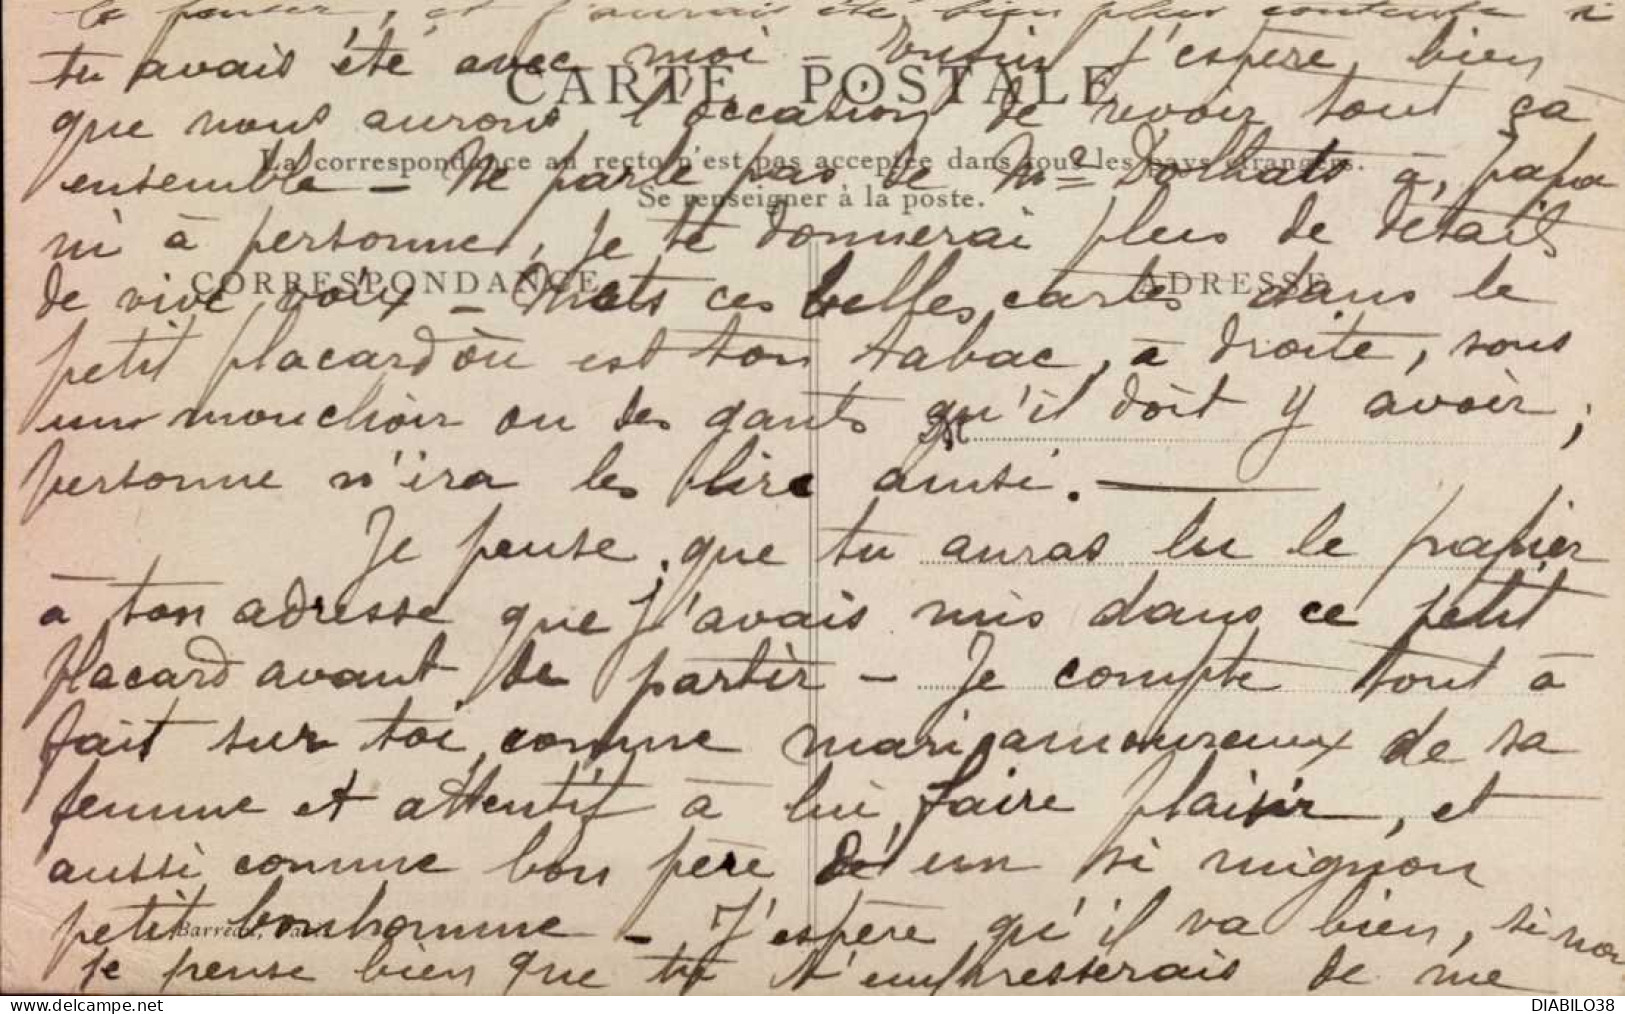 le penser, et j'aurais été bien plus contente si
tu avais été avec moi - Enfin j'espère bien
CARTE POSTALE
que nous aurons l'occation de revoir tout ça
La correspondance au recto n'est pas acceptée dans tous les pays étrangers.
ensemble - Ne parle pas de Mme à papa
Se renseigner à la poste.
ni à personne, je te donnerai plus de détails
CORRESPONDANCE ADRESSE
de vive voix - Mets ces belles cartes dans le
petit placard où est ton tabac, à droite, sous
un mouchoir ou des gants qu'il doit y avoir;
personne n'ira les lire ainsi.
Je pense que tu auras lu le papier
à ton adresse que j'avais mis dans ce petit
placard avant de partir - Je compte tout à
fait sur toi comme mari amoureux de sa
femme et attentif à lui faire plaisir, et
aussi comme bon père d'un si mignon
petit bonhomme - J'espère qu'il va bien, si non
je pense bien que tu t'empresserais de me
DIABILO38